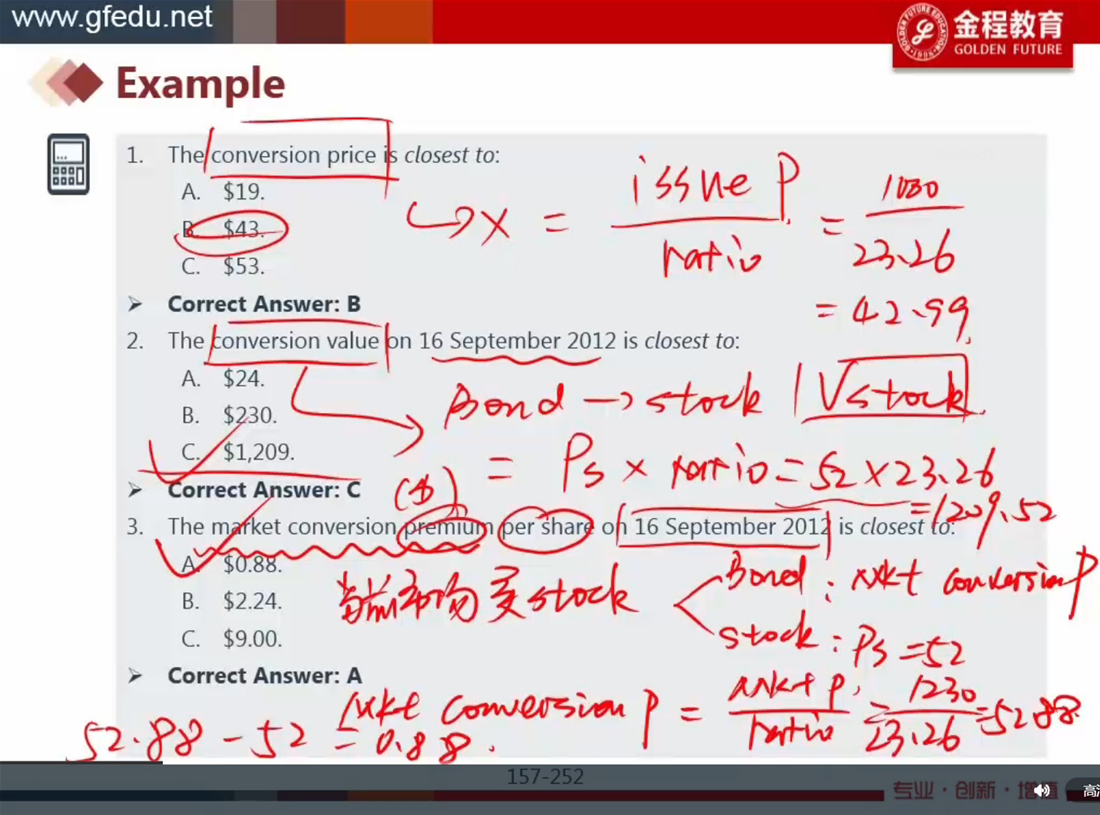 www.gfedu.net
金程教育
GOLDEN FUTURE
Example
1. The conversion price is closest to:
A. $19.
B. $43.
C. $53.
➢ Correct Answer: B
issue P
ratio
↪ X = = 1000
23.26
= 42.99
2. The conversion value on 16 September 2012 is closest to:
A. $24.
B. $230.
C. $1,209.
➢ Correct Answer: C
Bond → stock | V stock
= Ps × ratio = 52 × 23.26
= 1209.52
($)
3. The market conversion premium per share on 16 September 2012 is closest to:
A. $0.88.
B. $2.24.
C. $9.00.
➢ Correct Answer: A
当前市场买stock
Bond: mkt conversion P
stock: Ps = 52
mkt conversion P = mkt P. = 1230 = 52.88
ratio 23.26
52.88 - 52 = 0.88.
157-252
专业·创新·增值